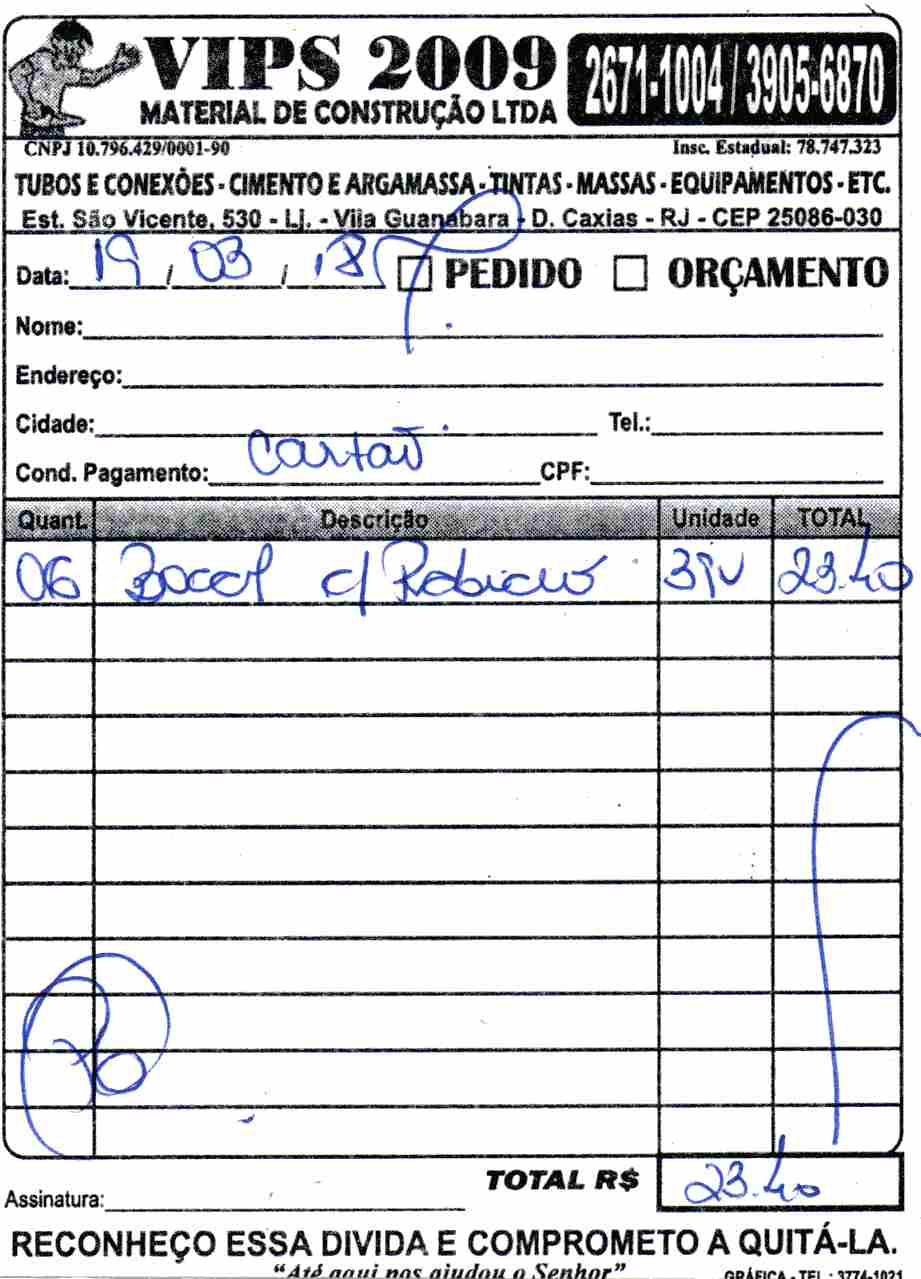 VIPS 2009
MATERIAL DE CONSTRUÇÃO LTDA
2671-1004 / 3905-6870
CNPJ 10.796.429/0001-90 Insc. Estadual: 78.747.323
TUBOS E CONEXÕES - CIMENTO E ARGAMASSA - TINTAS - MASSAS - EQUIPAMENTOS - ETC.
Est. São Vicente, 530 - Lj. - Vila Guanabara - D. Caxias - RJ - CEP 25086-030
Data: 19 / 03 / 18 PEDIDO ORÇAMENTO
Nome:
Endereço:
Cidade: Tel.:
Cond. Pagamento: Cartão CPF:
Quant. Descrição Unidade TOTAL
06 Bocal c/ 23.40
TOTAL R$ 23.40
Assinatura:
RECONHEÇO ESSA DIVIDA E COMPROMETO A QUITÁ-LA.
"Até aqui nos ajudou o Senhor" GRÁFICA - TEL.: 3774-1021